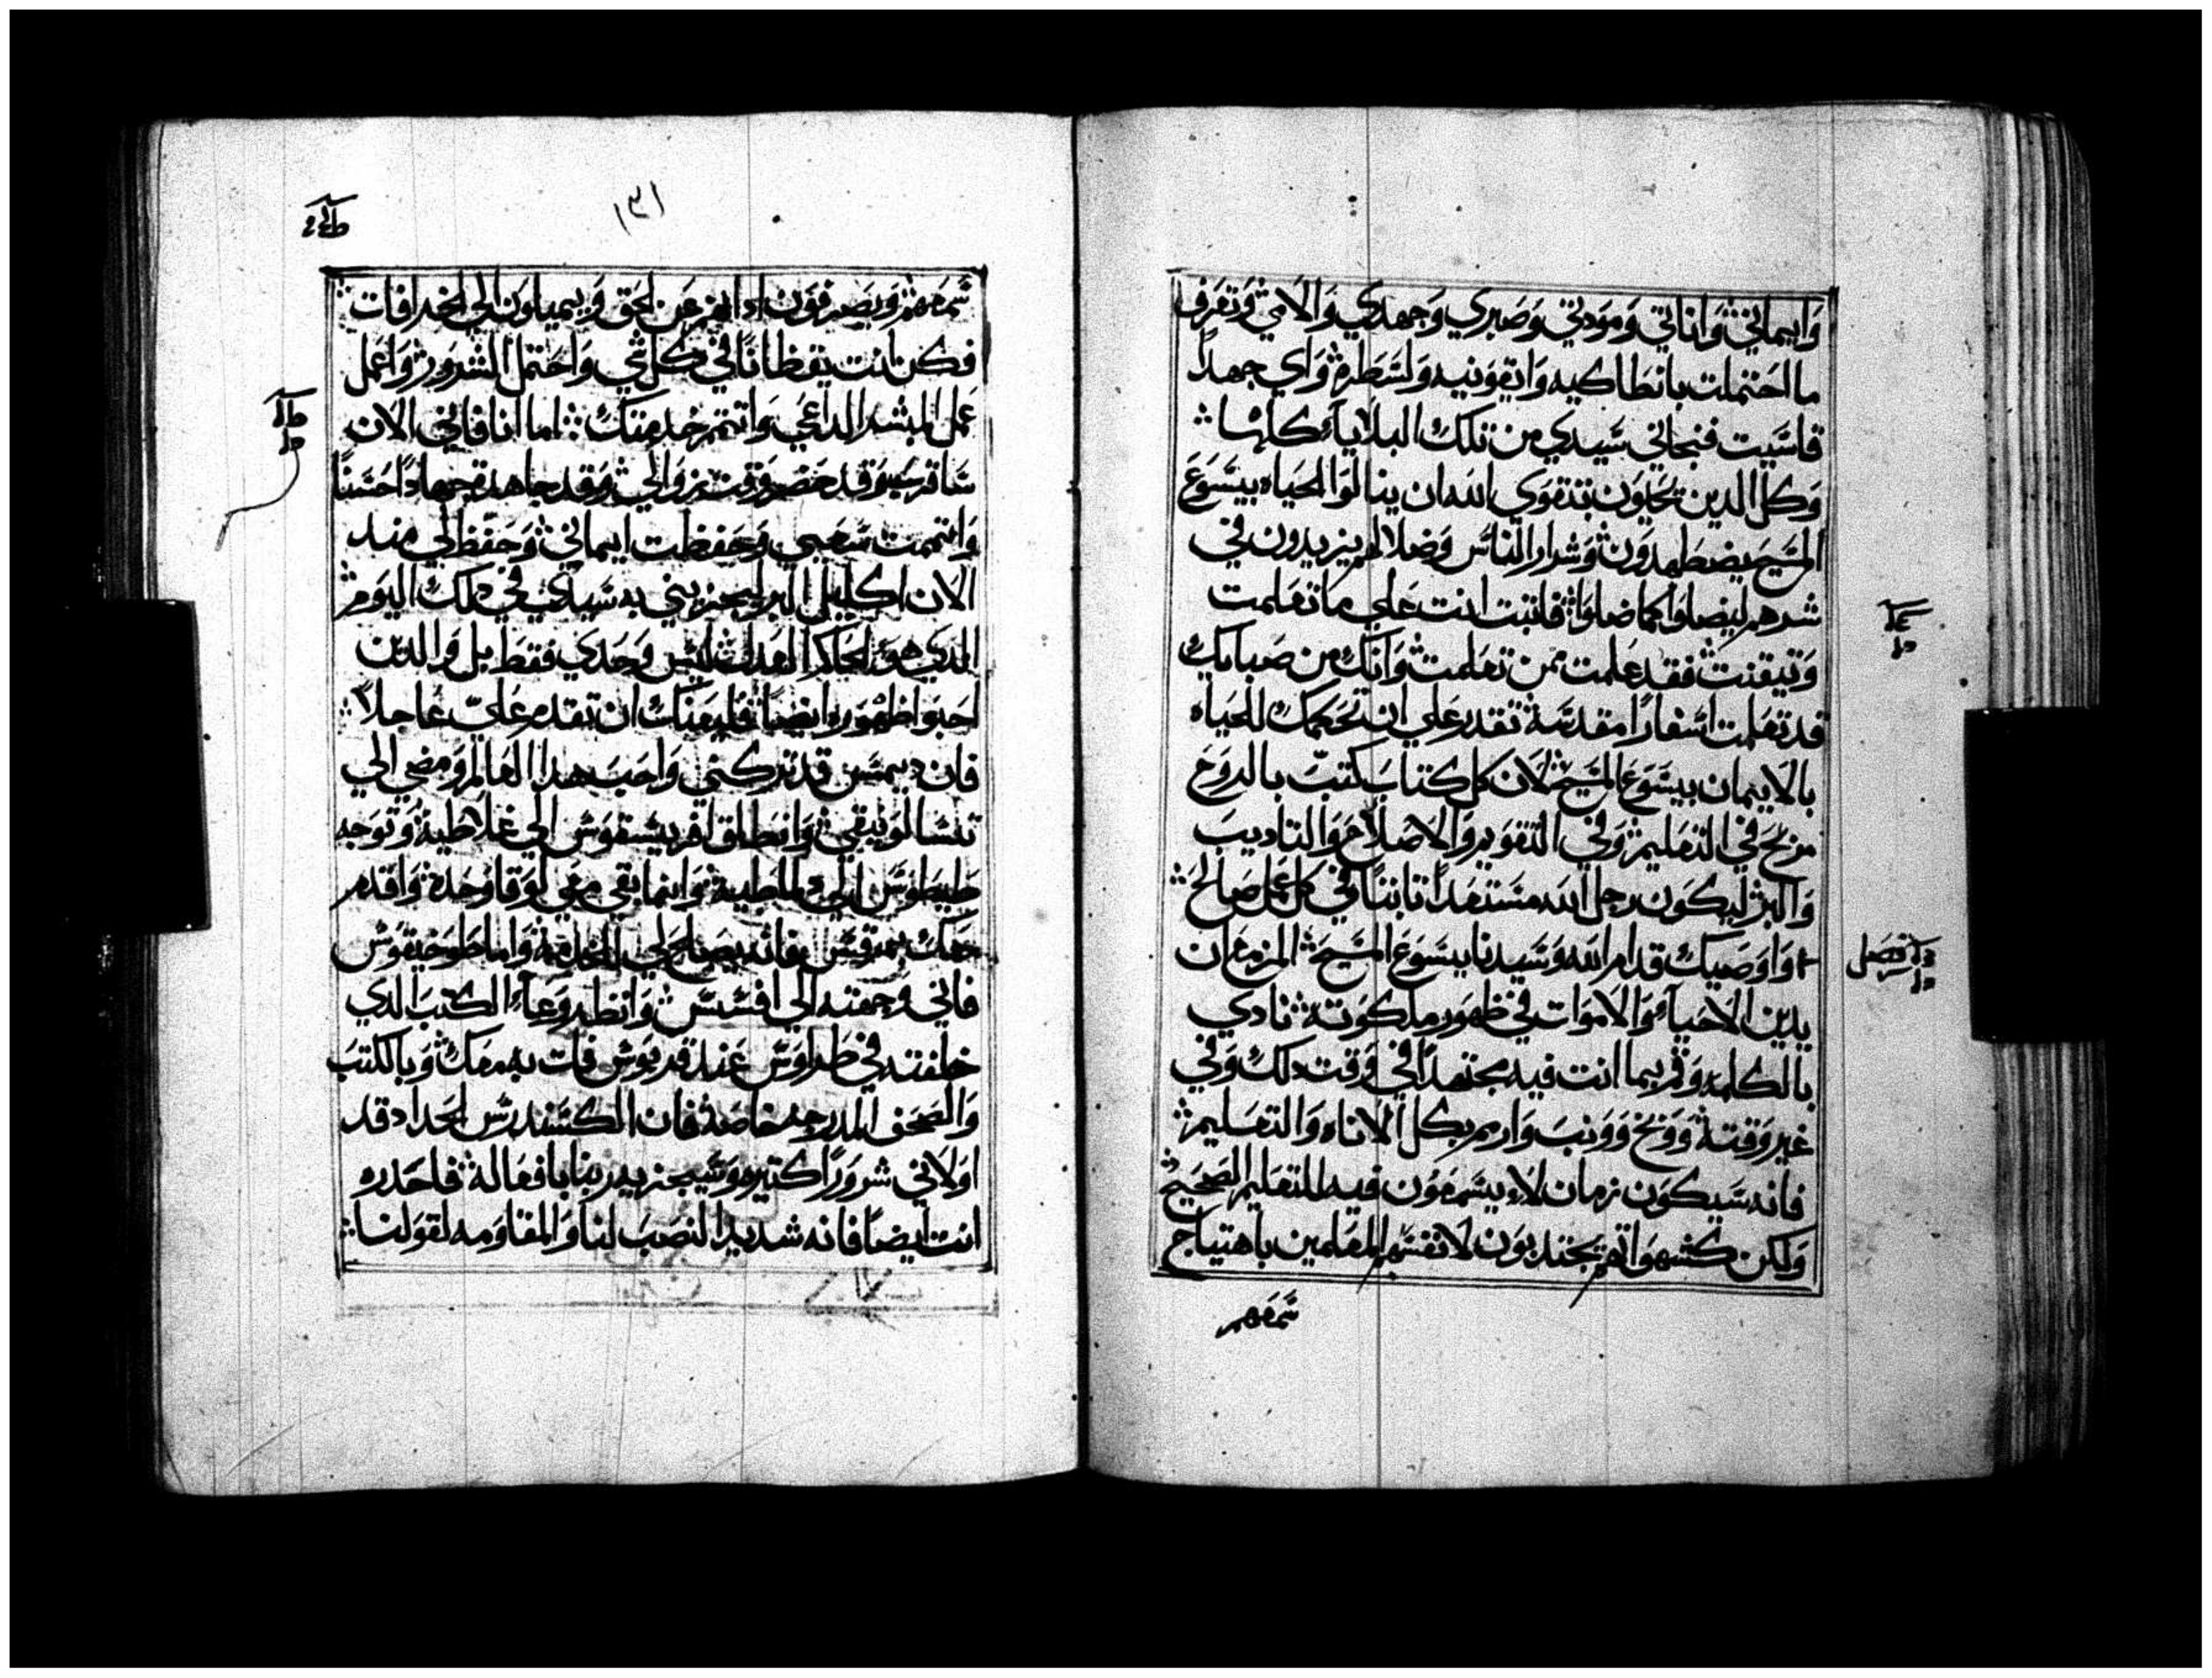 وايماني واناتي ومودتي وصبري وجهدي والامي وتعرف
ما احتملت بانطاكيه وايقونيه ولسطره واي جهداً
قاسيت فنجاني سيدي من تلك البلايا كلها
وكل الدين يحيون بتقوي الله ان ينالوا الحياه بيسوع
المسيح يضطهدون وشرار الناس وضلالهم يزيدون في
شرهم ليضلوا كما ضلوا فاتبت انت علي ما تعلمت
وتيقنت فقد علمت ممن تعلمت وانك من صبايك
قد تعلمت اسفاراً مقدسة تقدر علي ان تحكمك للحياه
بالايمان بيسوع المسيح لان كل كتاب كتب بالروح
مربح في التعليم وفي التقويم والاصلاح والتاديب
والبر ليكون رجل الله مستعداً تابتاً في كل عمل صالح
واوصيك قدام الله وسيدنا يسوع المسيح المزمع ان
يدين الاحياء والاموات في ظهور ملكوته نادي
بالكلمه وقم بما انت فيه مجتهداً في وقت دلك وفي
غير وقته ووبخ وونب وارم بكل الاناه والتعليم
فانه سيكون زمان لا يسمعون فيه للتعليم الصحيح
ولكن كشهواتهم يجتدبون لانفسهم المعلمين باهتياج
سمعهم
فصل
١٣١
سمعهم ويصرفون ادانهم عن الحق ويميلون الي الخرافات
فكن انت يقظاناً في كل شي واحتمل الشرور واعمل
عمل المبشر الداعي واتمم خدمتك اما انا فاني الان
وقد حضر وقت زوالي وقد جاهدت جهاداً حسناً
واتممت سعيي وحفظت ايماني وحفظ لي مند
الان اكليل البر ليجزيني به سيدي في دلك اليوم
الدي هو الحاكم العدل ليس وحدي فقط بل والدين
احبوا ظهوره ايضاً فليعنك ان تقدم عليّ عاجلاً
فان ديمس قد تركني واحب هدا العالم ومضي الي
تسالونيقي وانطلق اقريسقوس الي غلاطية وتوجه
طيطوس الي دلماطية وانما بقي معي لوقا وحده واقدم
معك بمرقس فانه يصلح لي للخدمة واما طوخيقوس
فاني وجهته الي افسس وانظر وعاء الكتب الدي
خلفته في طراوس عند قربوس فات به معك وبالكتب
والصحف المدرجه خاصة فان الكسندرس الحداد قد
اولاني شروراً كتيره وسيجزيه ربنا بافعاله فاحدره
انت ايضاً فانه شديد النصب لنا والمقاومه لقولنا